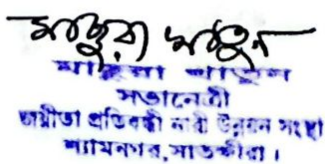 মাছুরা খাতুন
মাছুরা খাতুন
সভানেত্রী
প্রতিবন্ধী নারী উন্নয়ন সংস্থা
শ্যামনগর, সাতক্ষীরা।